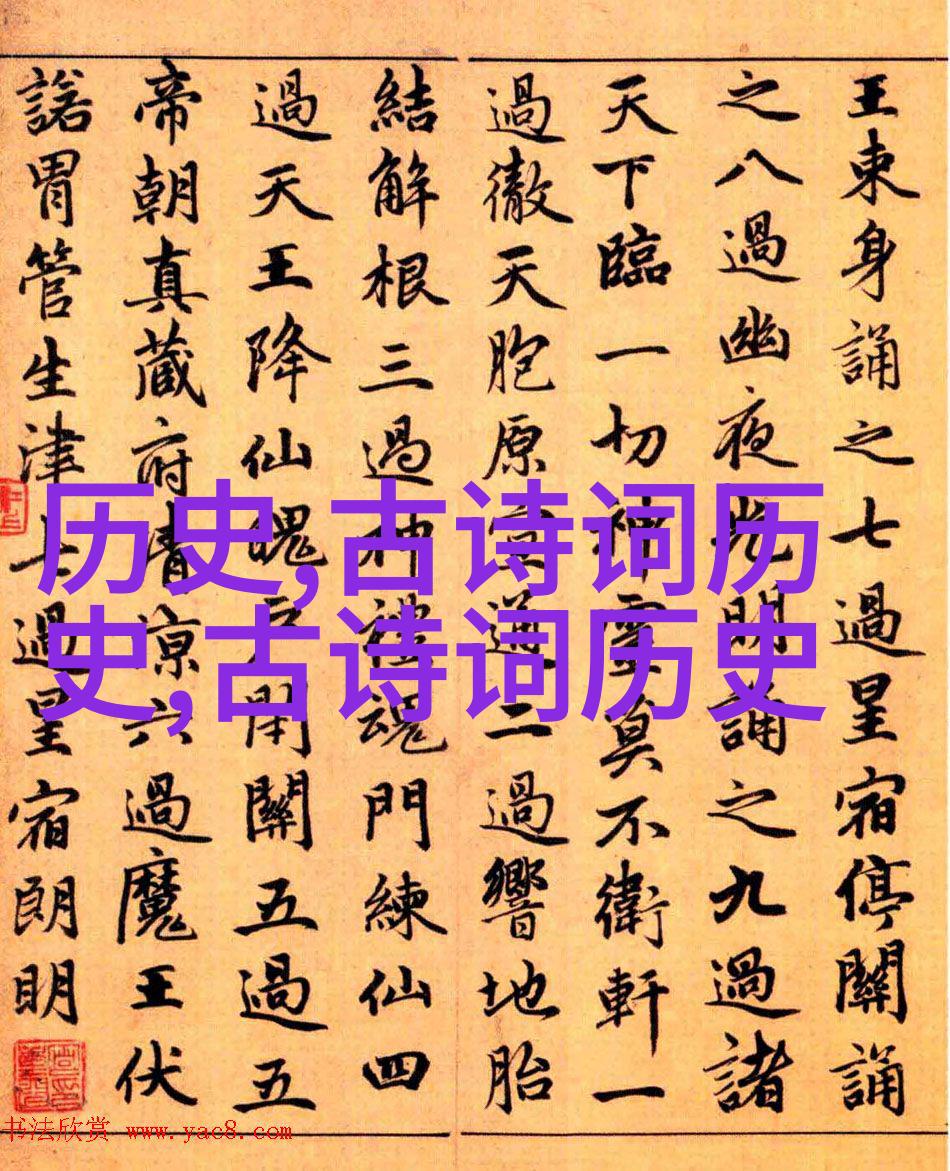 王束身誦之七過星宿停關誦
之八過幽夜光明誦之九過諸
天下臨一切神靈莫不衛軒一
過徹天胞原宣通二過響地胎
結解根三過神禮魂門練仙四
過天王降仙魄戶閉關五過五
帝朝真藏府清涼六過魔王伏
諾胃管生津七過星宿朗明
历史,古诗词历
史,古诗词历史
书法欣赏 www.yac8.com